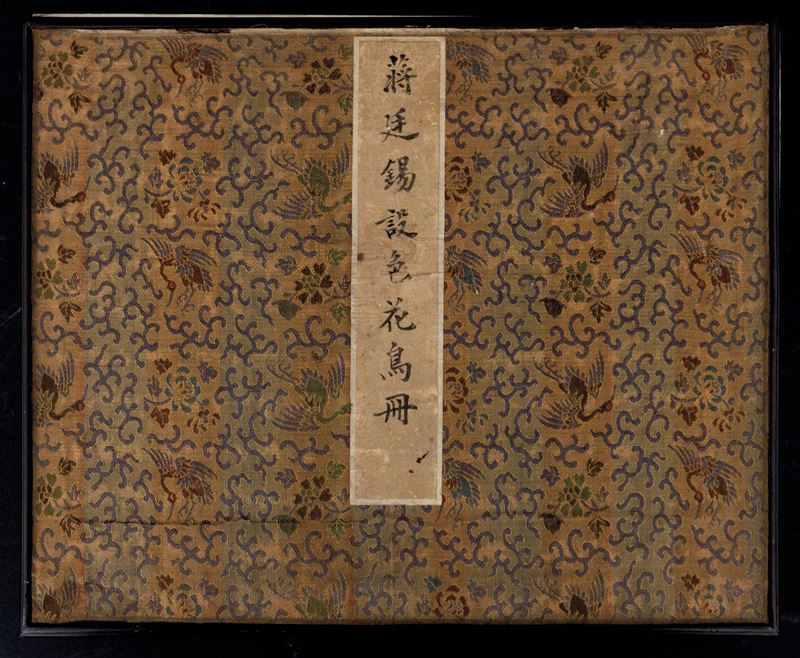 蔣廷錫設色花鳥冊